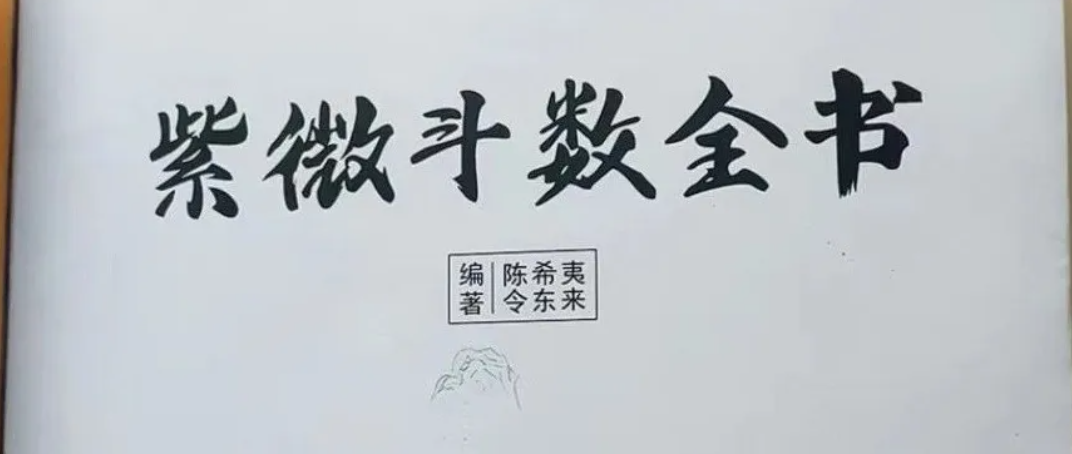 紫微斗数全书
编著
陈希夷
令东来